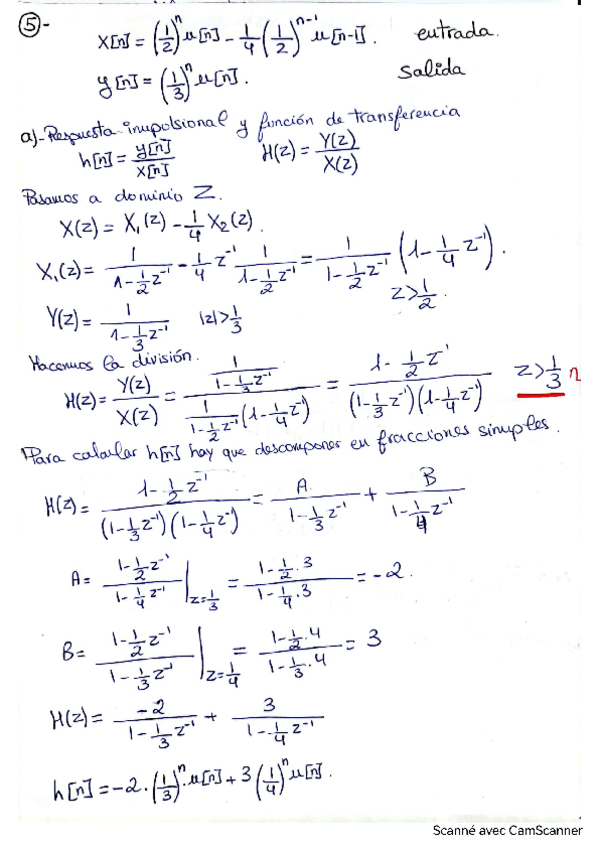 ⑤-
x[n] = (1/2)^n u[n] - 1/4 (1/2)^(n-1) u[n-1]. entrada.
y[n] = (1/3)^n u[n]. Salida
a)- Respuesta impulsional y función de transferencia
h[n] = y[n]/x[n] H(z) = Y(z)/X(z)
Pasamos a dominio Z.
X(z) = X₁(z) - 1/4 X₂(z).
X₁(z) = 1/(1 - 1/2 z⁻¹) - 1/4 z⁻¹ 1/(1 - 1/2 z⁻¹) = 1/(1 - 1/2 z⁻¹) (1 - 1/4 z⁻¹). z > 1/2.
Y(z) = 1/(1 - 1/3 z⁻¹) |z| > 1/3
Hacemos la división.
H(z) = Y(z)/X(z) = (1/(1 - 1/3 z⁻¹))/(1/(1 - 1/2 z⁻¹) (1 - 1/4 z⁻¹)) = (1 - 1/2 z⁻¹)/((1 - 1/3 z⁻¹)(1 - 1/4 z⁻¹)) z > 1/3
Para calcular h[n] hay que descomponer en fracciones simples.
H(z) = (1 - 1/2 z⁻¹)/((1 - 1/3 z⁻¹)(1 - 1/4 z⁻¹)) = A/(1 - 1/3 z⁻¹) + B/(1 - 1/4 z⁻¹)
A = (1 - 1/2 z⁻¹)/(1 - 1/4 z⁻¹) |z=1/3 = (1 - 1/2 · 3)/(1 - 1/4 · 3) = -2.
B = (1 - 1/2 z⁻¹)/(1 - 1/3 z⁻¹) |z=1/4 = (1 - 1/2 · 4)/(1 - 1/3 · 4) = 3
H(z) = -2/(1 - 1/3 z⁻¹) + 3/(1 - 1/4 z⁻¹)
h[n] = -2 · (1/3)^n · u[n] + 3 (1/4)^n u[n].
Scanné avec CamScanner